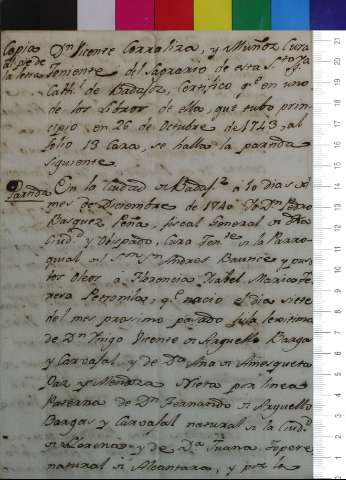 Copia
al pie de
la letra
Dⁿ Vicente Corraliza, y Muñoz Cura
Teniente del Sagrario de esta Sᵗᵃ Yg
Cathˡ de Badajoz, Certifico qᵉ en uno
de los Libros de ella, que tubo prin-
cipio en 26 de Octubre de 1743, al
folio 13 Cara, se halla la partida
siguiente
Partida
En la Ciudad de Badajᶻ a 10 dias del
mes de Diciembre de Dⁿ Pedro
Basquez Peña, fiscal General de dha
Ciudᵈ y Obispado, Cura Tenᵗᵉ en la Parro-
quial de Sⁿ Andres Bautice y pus
los Oleos a Florencia Isabel Maria Te-
resa Petronila, qᵉ nacio el dia siete
del mes proximo pasado hija lexitima
de Dⁿ Iñigo Vicente de Arguello Bargas
y Carvajal y de Dᵃ Ana de Amesqueta
Paz y Mendoza Nieta por linea
Paterna de Dⁿ Fernando de Arguello
Bargas y Carvajal natural de la Ciudᵈ
de Llerena y de Dᵃ Juana
natural de Alcantara, y por la